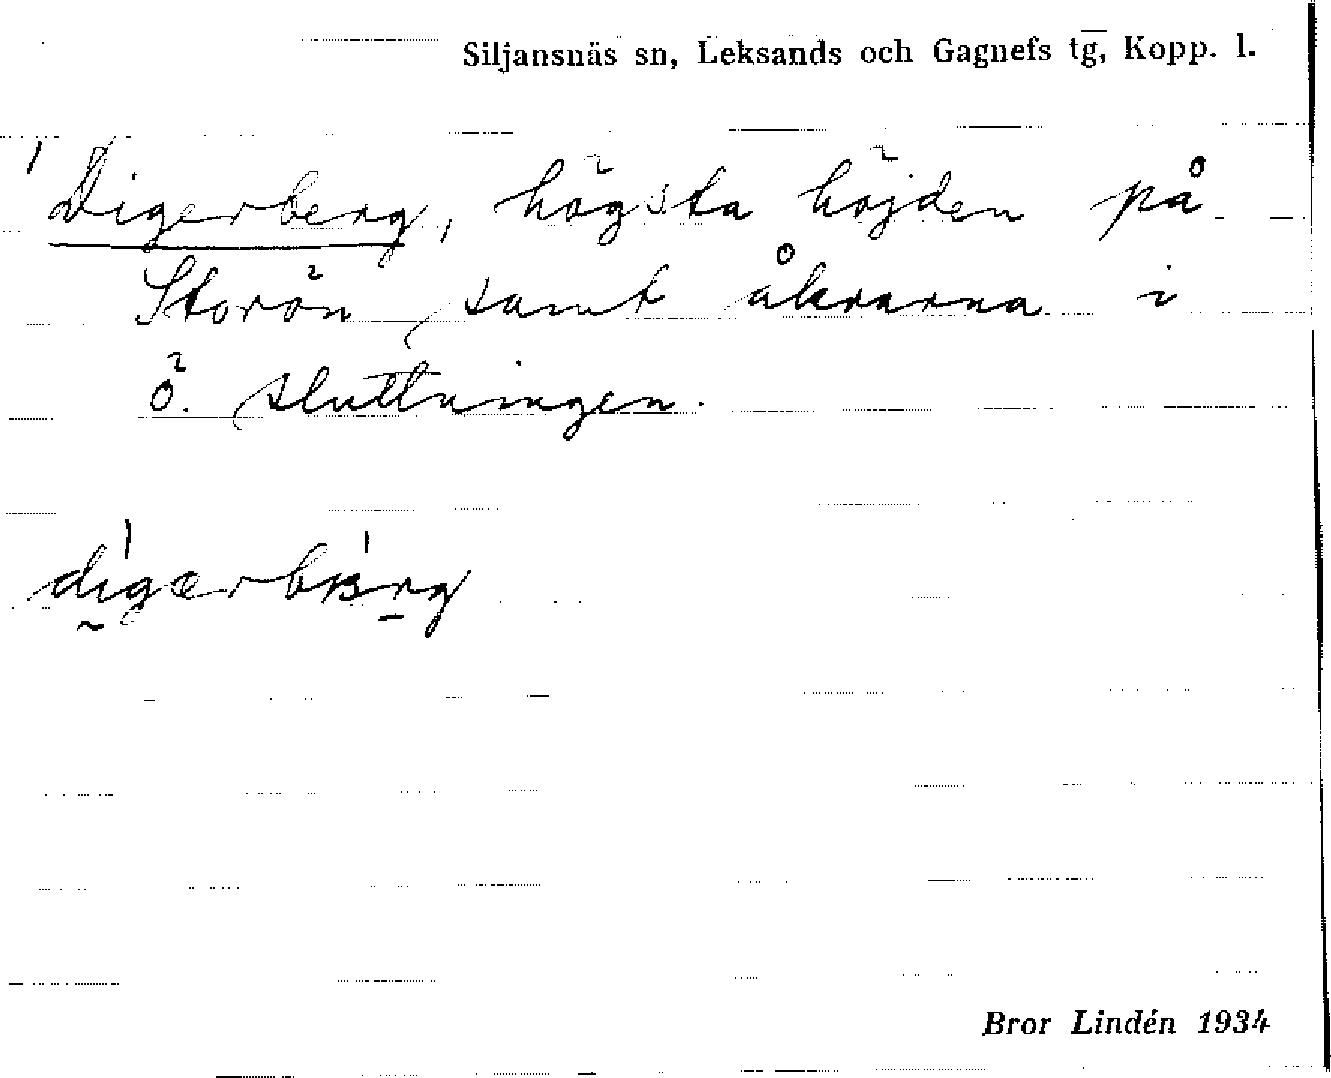 Siljansnäs sn, Leksands och Gagnefs tg, Kopp. l.
Digerberg, högsta höjden på
Storön samt åkrarna i
ö. sluttningen.
Bror Lindén 1934